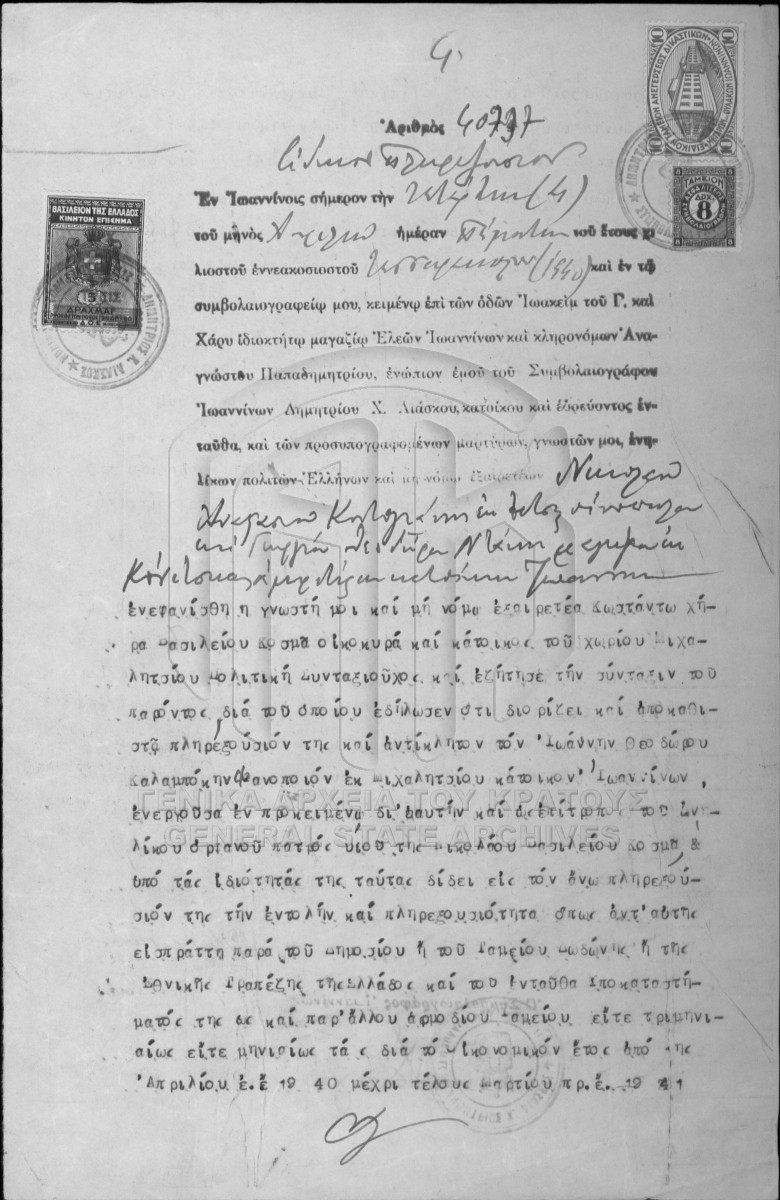 4.
Ἀριθμὸς 40737
Εἰδικὸν Πληρεξούσιον
Ἐν Ἰωαννίνοις σήμερον τὴν τετάρτην (4)
τοῦ μηνὸς Ἀπριλίου ἡμέραν Πέμπτην τοῦ ἔτους χι
λιοστοῦ ἐννεακοσιοστοῦ τεσσαρακοστοῦ (1940) καὶ ἐν τῷ
συμβολαιογραφείῳ μου, κειμένῳ ἐπὶ τῶν ὁδῶν Ἰωακεὶμ τοῦ Γ. καὶ
Χάρυ ἰδιοκτήτῳ μαγαζίῳ Ἐλεῶν Ἰωαννίνων καὶ κληρονόμων Ἀνα-
γνώστου Παπαδημητρίου, ἐνώπιον ἐμοῦ τοῦ Συμβολαιογράφου
Ἰωαννίνων Δημητρίου Χ. Λιάσκου, κατοίκου καὶ ἑδρεύοντος ἐν-
ταῦθα, καὶ τῶν προσυπογραφομένων μαρτύρων, γνωστῶν μοι, ἐνη-
λίκων πολιτῶν Ἑλλήνων καὶ μὴ νόμῳ ἐξαιρετέων Νικολάου
κατοίκων Ἰωαννίνων
ἐνεφανίσθη η γνωστή μοι καί μή νόμω ἐξαιρετέα Κωστάντω χή-
ρα Βασιλείου Κοσμᾶ οἰκοκυρά καί κάτοικος τοῦ χωρίου Μιχα-
λητσίου Πολιτική Συνταξιοῦχος καί ἐζήτησε τήν σύνταξιν τοῦ
παρόντος, διά τοῦ ὁποίου ἐδήλωσεν ὅτι διορίζει καί ἀποκαθι-
στᾷ πληρεξούσιόν της καί ἀντίκλητον τόν Ἰωάννην Θεοδώρου
Καλαμπόκην Φανοποιόν ἐκ Μιχαλητσίου κάτοικον Ἰωαννίνων,
ἐνεργοῦσα ἐν προκειμένω δι'ἑαυτήν καί ὡς ἐπίτροπος τοῦ ἀνη-
λίκου ὀρφανοῦ πατρός υἱοῦ της Νικολάου Βασιλείου Κοσμᾶ, &
ὑπό τάς ἰδιότητάς της ταύτας δίδει εἰς τόν ἄνω πληρεξού-
σιόν της τήν ἐντολήν καί πληρεξουσιότητα ὅπως ἀντ'αὐτῆς
εἰσπράττη παρά τοῦ Δημοσίου ἤ τοῦ Ταμείου Δωδώνης ἤ τῆς
Ἐθνικῆς Τραπέζης τῆς Ἑλλάδος καί τοῦ ἐνταῦθα Ὑποκαταστή-
ματός της ὡς καί παρ'ἄλλου ἁρμοδίου Ταμείου εἴτε τριμηνι-
αίως εἴτε μηνιαίως τάς διά τό οἰκονομικόν ἔτος ἀπό 1ης
Ἀπριλίου ἐ.ἔ 1940 μέχρι τέλους Μαρτίου πρ.ἔ. 1941
ΒΑΣΙΛΕΙΟΝ ΤΗΣ ΕΛΛΑΔΟΣ
ΚΙΝΗΤΟΝ ΕΠΙΣΗΜΑ
15
ΔΡΑΧΜΑΙ
ΤΑΜΕΙΟΝ
ΔΡΧ.
8
ΓΕΝΙΚΑ ΑΡΧΕΙΑ ΤΟΥ ΚΡΑΤΟΥΣ
GENERAL STATE ARCHIVES